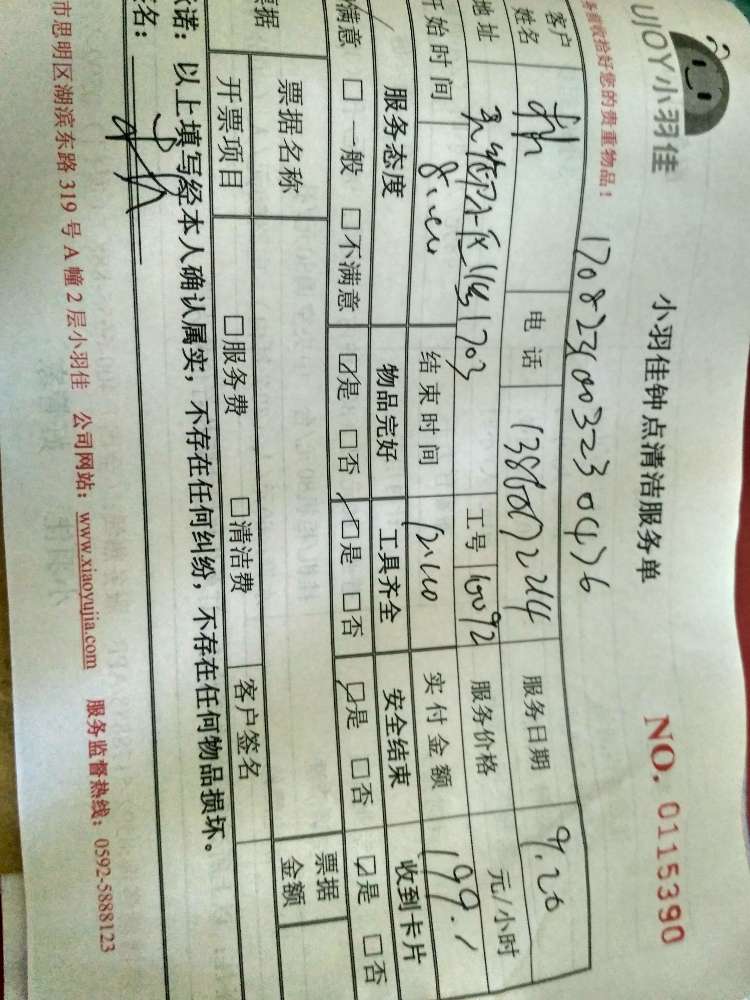 UJOY小羽佳
小羽佳钟点清洁服务单
NO. 0115390
务前收拾好您的贵重物品!
客户姓名 电话 服务日期 9.20
地址 1703 工号 10092 服务价格 元/小时
开始时间 8:00 结束时间 12:00 实付金额 199.1
服务态度 物品完好 工具齐全 安全结束 收到卡片
满意 □ 一般 □ 不满意 ☑是 □否 ☑是 □否 ☑是 □否 ☑是 □否
票据 票据名称 票据金额
开票项目 □服务费 □清洁费 客户签名
诺: 以上填写经本人确认属实, 不存在任何纠纷, 不存在任何物品损坏。
名:
市思明区湖滨东路 319 号 A 幢 2 层小羽佳 公司网站: www.xiaoyujia.com 服务监督热线: 0592-5888123